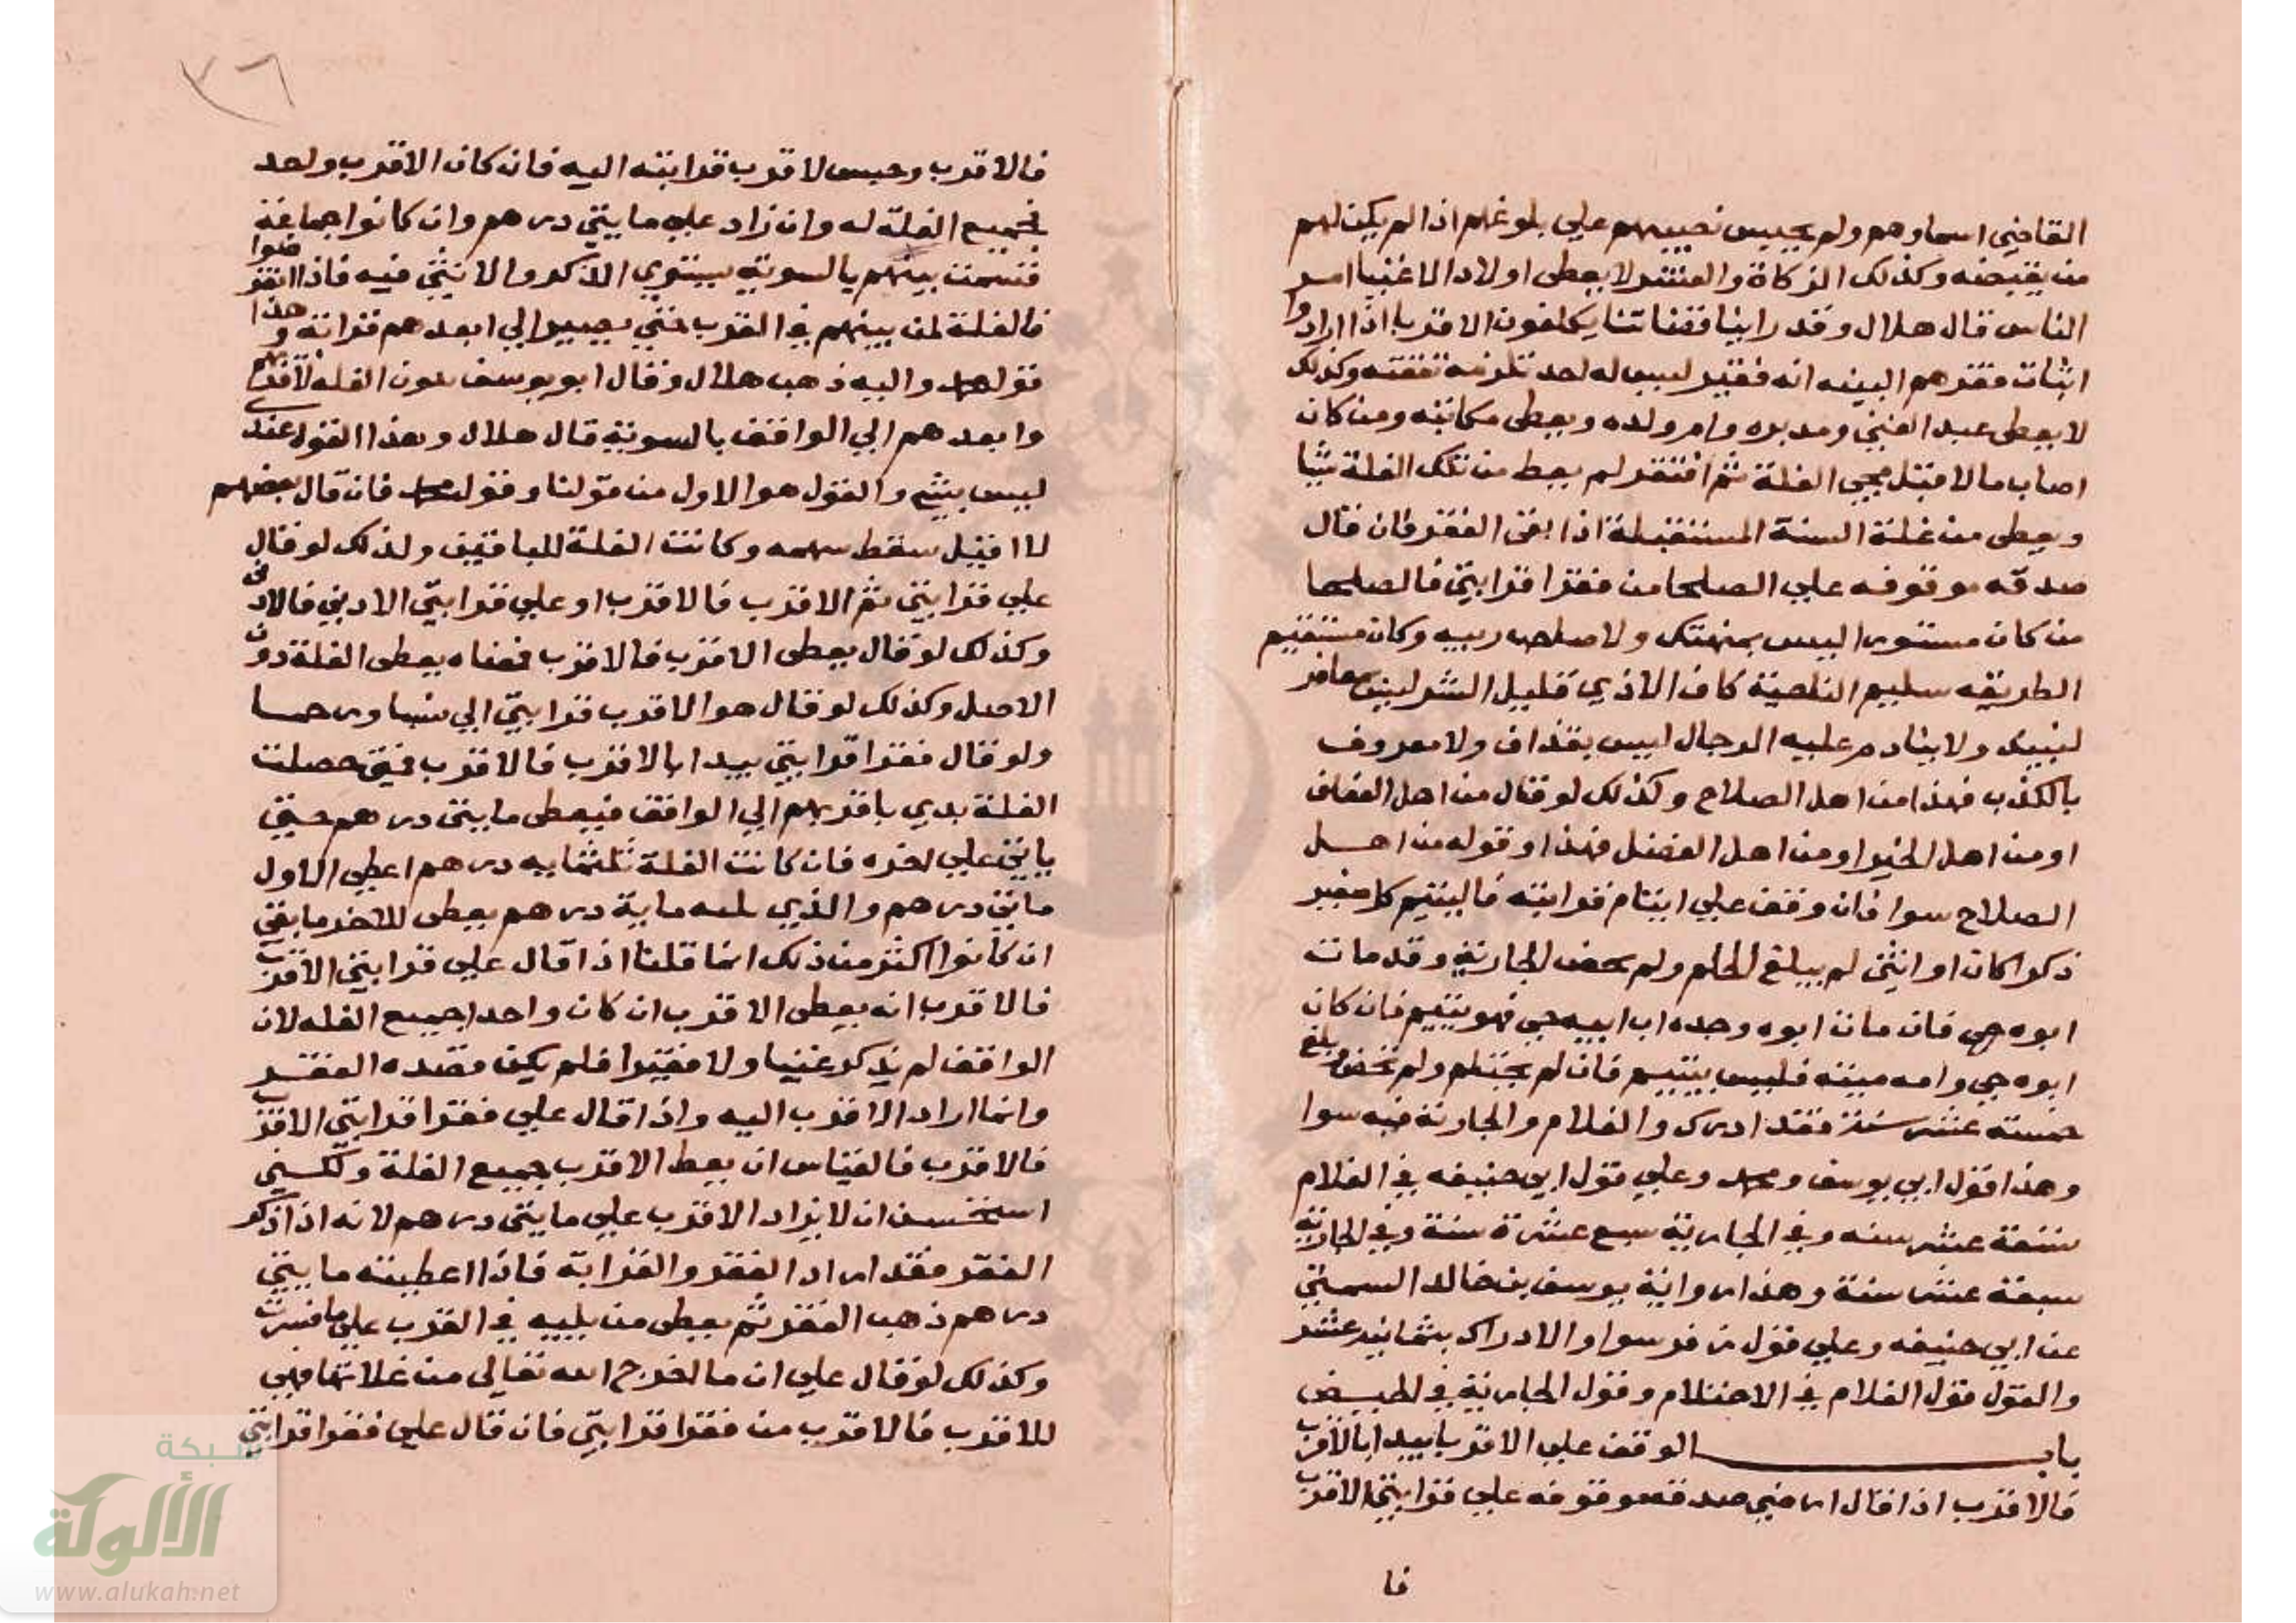 القاضي اسماوهم ولم يحبس نصيبهم علي بلوغهم اذا لم يكن لهم
من يقبضه وكذلك الزكاة والعشر لا يعطى اولاد الاغنيا امر
الناس قال هلال وقد راينا فقهاتنا يكلفون الاقربا اذا ارادوا
اثبات فقرهم البينه انه فقير ليس له احد تلزمه نفقته وكذلك
لا يعطى عبد الغني ومدبره وام ولده ويعطى مكاتبه ومن كان
اصاب مالا قبل مجي الغلة ثم افتقر لم يعط من تلك الغلة شيا
ويعطى من غلة السنة المستقبلة اذا بقى الفقر فان قال
صدقه موقوفه علي الصلحا من فقرا قرابتي فالصلحا
من كان مستورا ليس بمنهتك ولا صاحب ريبه وكان مستقيم
الطريقه سليم الناحية كاف الاذي قليل الشر ليس معاقر
لنبيد ولا ينادم عليه الرجال ليس بقذاف ولا معروف
بالكذب فهذا من اهل الصلاح وكذلك لو قال من اهل العفاف
او من اهل الخير او من اهل الفضل فهذا وقوله من اهل
الصلاح سوا فان وقف علي ايتام قرابته فاليتيم كل صغير
ذكرا كان او انثى لم يبلغ الحلم ولم تحض الجارية وقد مات
ابوه حي فان مات ابوه وجده اب ابيه حي فهو يتيم فان كان
ابوه حي وامه ميته فليس بيتيم فان لم يحتلم ولم تحض وبلغ
خمسته عشر سنة فقد ادرك والغلام والجارية فيه سوا
وهذا قول ابي يوسف ومحمد وعلي قول ابي حنيفه في الغلام
تسعة عشر سنه وفي الجارية سبع عشرة سنة وفي الجارية
سبعة عشر سنة وهذا رواية يوسف بن خالد السمتي
عن ابي حنيفه وعلي قول زفر سوا والادراك بثمانيه عشر
والقول قول الغلام في الاحتلام وقول الجارية في الحيض
باب الوقف علي الاقربا يبدا بالاقرب
فالاقرب اذا قال ارضي صدقه موقوفه علي قرابتي الاقرب
فا
٣٦
فالاقرب وحبس لاقرب قرابته اليه فان كان الاقرب واحد
فجميع الغلة له وان زاد علي مايتي درهم وان كانوا جماعة
قسمت بينهم بالسوية يستوي الذكر والانثى فيه فاذا انقرضوا
فالغلة لمن يليهم في القرب حتي يصير الي ابعدهم قرابة وهذا
قول محمد واليه ذهب هلال وقال ابو يوسف تكون الغله لاقربهم
وابعدهم الي الواقف بالسوية قال هلال وهذا القول عندي
ليس بشي والقول هو الاول من قولنا وقول محمد فان قال بعضهم
لا اقبل سقط سهمه وكانت الغلة للباقين ولذلك لو قال
علي قرابتي ثم الاقرب فالاقرب او علي قرابتي الادني فالادنى
وكذلك لو قال يعطى الاقرب فالاقرب فمعناه يعطى الغلة دون
الاصل وكذلك لو قال هو الاقرب قرابتي الي
ولو قال فقرا قرابتي يبدا بالاقرب فالاقرب فمتى حصلت
الغلة بدي باقربهم الي الواقف فيعطى مايتى درهم حتي
ياتي علي اخره فان كانت الغلة ثلثمايه درهم اعطي الاول
مايتي درهم والذي يليه ماية درهم يعطى للاخر ما بقي
ان كانوا اكثر من ذلك انما قلنا اذا قال علي قرابتي الاقرب
فالاقرب انه يعطى الاقرب ان كان واحدا جميع الغله لان
الواقف لم يذكر غنيا ولا فقيرا فلم يكن قصده الفقر
وانما اراد الاقرب اليه واذا قال علي فقرا قرابتي الاقرب
فالاقرب فالقياس ان يعط الاقرب جميع الغلة ولكني
استحسن ان لا يزاد الاقرب علي مايتي درهم لانه اذا ذكر
الفقر فقد اراد الفقر والقرابة فاذا اعطيته مايتي
درهم ذهب الفقر ثم يعطى من يليه في القرب علي ما فسرت
وكذلك لو قال علي ان ما اخرج الله تعالى من غلاتها فهي
للاقرب فالاقرب من فقرا قرابتي فان قال علي فقرا قرابتي
شبكة
الألوكة
www.alukah.net